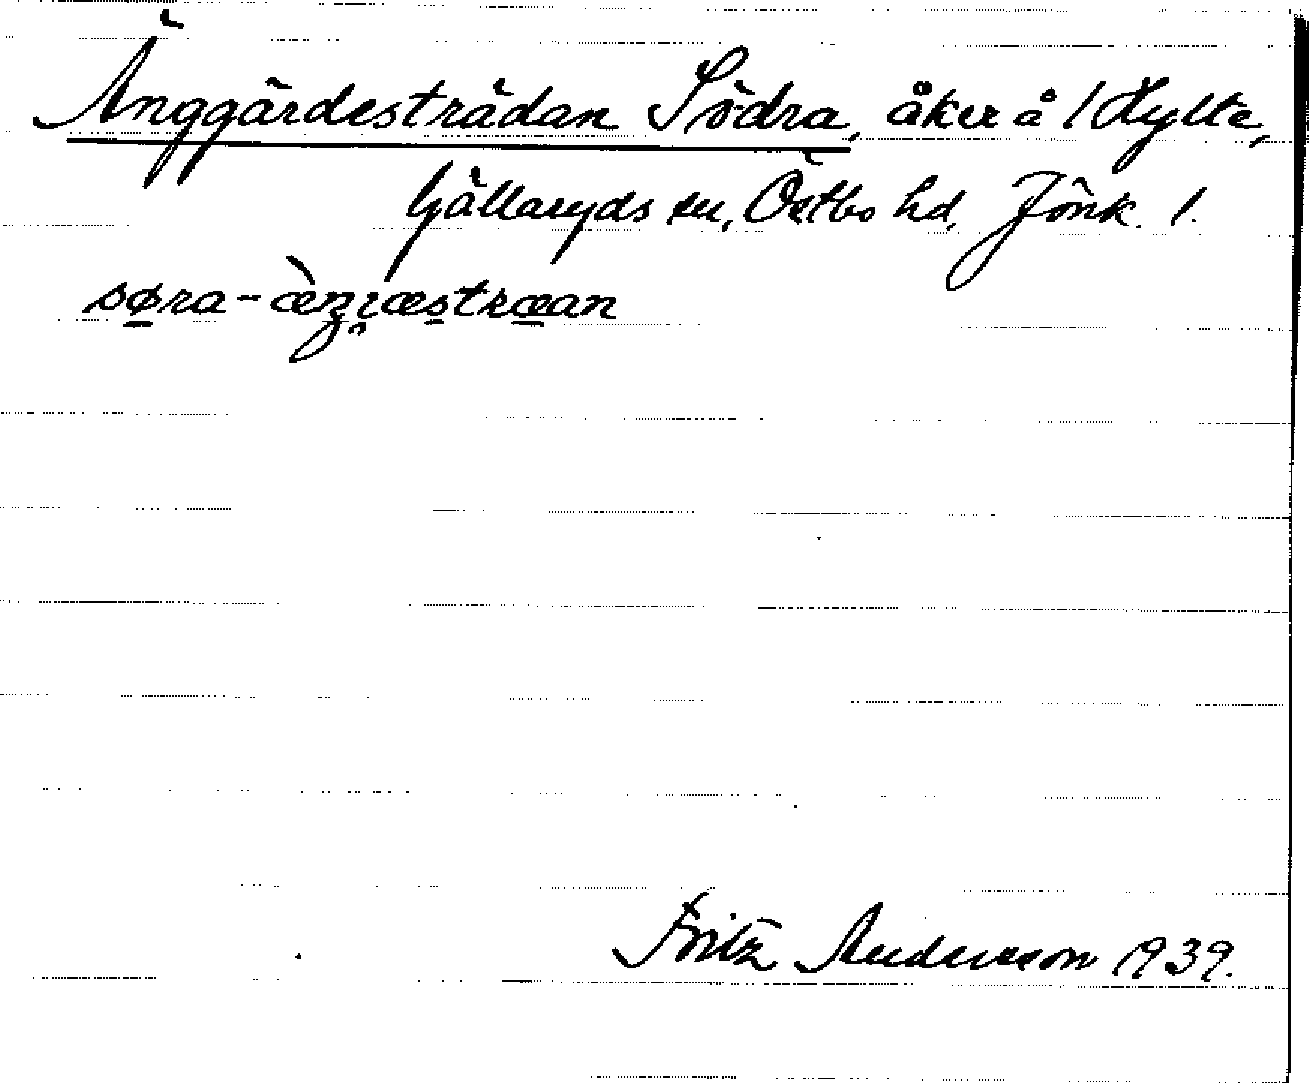 Änggärdesträdan Södra, åker å /Hylte,
Gällaryds sn, Östbo hd, Jönk. l.
søra-
Fritz Andersson 1939.